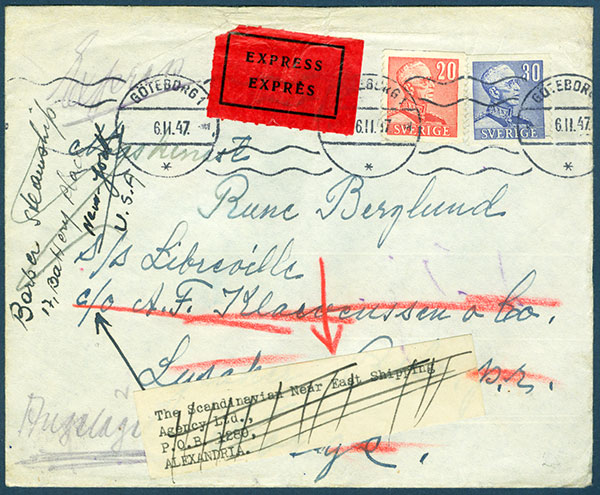 Express
EXPRESS
EXPRÈS
20
SVERIGE
30
SVERIGE
GÖTEBORG 1
6.11.47.
6.11.47.
GÖTEBORG
6.11.47.
Maskinist
Rune Berglund
S/s Libreville
c/o A.F. Klaveness & Co.
The Scandinavian Near East Shipping
Agency Ltd.,
P.O.B. 1280,
ALEXANDRIA.
Barber Steamship
17, Battery Place
New-York
U.S.A